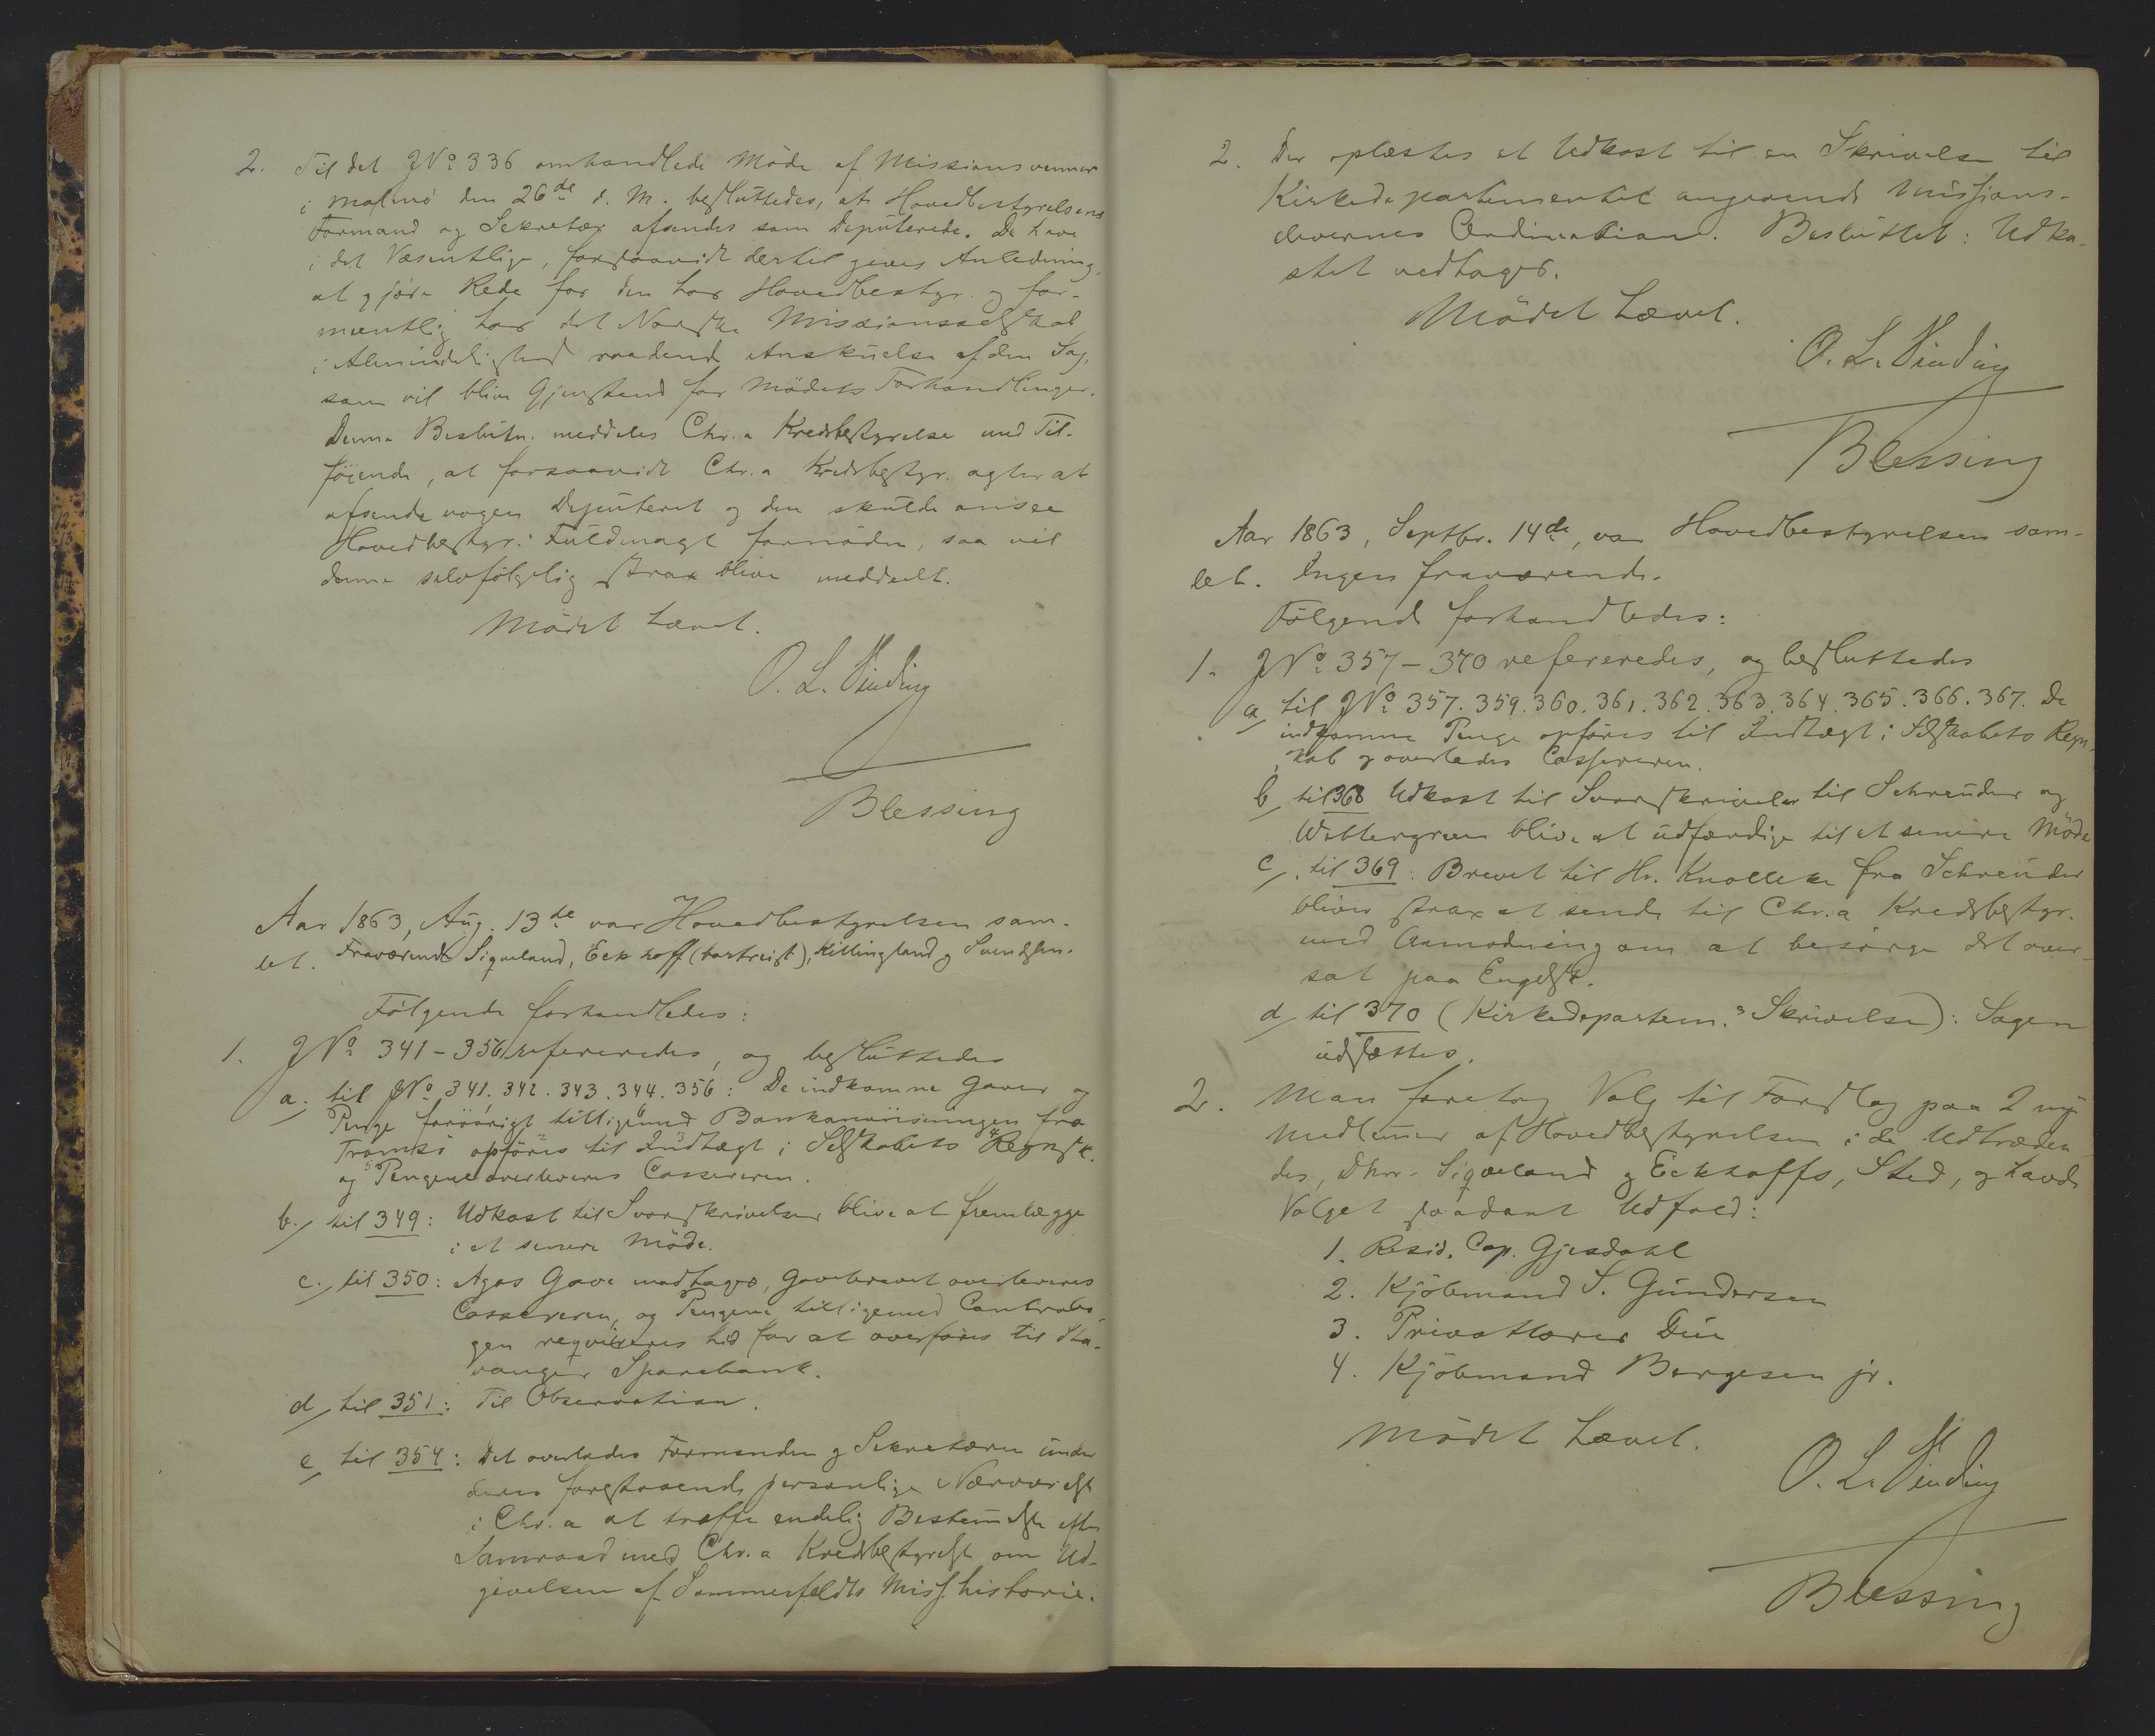 2. Til det JNo 336 omhandlede Möde af Missionsvenner
i Malmö den 26de d. M. besluttedes, at Hovedbestyrelsens
Formand og Sekretær afsendes som Deputerede. De have
i det Væsentlige, forsaavidt dertil gives Anledning,
at gjöre Rede for den hos Hovedbestyr. og for-
mentlig hos det Norske Missionsselskab
i Almindelighed raadende Anskuelse af den Sag,
som vil blive Gjenstand for Mödets Forhandlinger.
Denne Beslutn. meddeles Chr.a Kredsbestyrelse med Til-
föiende, at forsaavidt Chr.a Kredsbestyr. agter at
afsende nogen Deputeret og den skulde ansee
Hovedbestyr.s Fuldmagt fornöden, saa vil
denne selvfölgelig strax blive meddeelt.
Mödet hævet.
O. L. Vinding
Blessing
Aar 1863, Aug. 13de var Hovedbestyrelsen sam-
let. Fraværende Siqveland, Eckhoff (bortreist), Killingland og Svendsen.
Fölgende forhandledes:
1. JNo 341-356 refereredes, og besluttedes
a. til JNo 341. 342. 343. 344. 356: De indkomne Gaver og
Penge forövrigt tilligemed Bankanviisningen fra
Tromsö opföres til Indtægt i Selskabets Regnsk.
og Pengene overleveres Cassereren.
b. til 349: Udkast til Svarskrivelser blive at fremlægge
i et senere Möde.
c. til 350: Agas Gave modtages, Gavebrevet overleveres
Cassereren, og Pengene tilligemed Contrabo-
gen reqvireres hid for at overföres til Sta-
vanger Sparebank.
d til 351: Til Observation.
e til 354: Det overlades Formanden og Sekretæren under
deres forestaaende personlige Nærværelse
i Chr.a at træffe endelig Bestemmelse efter
Samraad med Chr.a Kredsbestyrelse om Ud-
givelsen af Sommerfeldts Miss. historie.
2. Der oplæstes et Udkast til en Skrivelse til
Kirkedepartementet angaaende Missions-
elevernes Ordination. Besluttet: Udka-
stet vedtages.
Mödet hævet.
O. L. Vinding
Blessing
Aar 1863, Septbr. 14de, var Hovedbestyrelsen sam-
let. Ingen fraværende.
Fölgende forhandledes:
1. JNo 357-370 refereredes, og besluttedes
a til JNo 357. 359. 360. 361. 362. 363. 364. 365. 366. 367. De
indkomne Penge opföres til Indtægt i Selskabets Regn-
skab og overlades Cassereren.
b til 368 Udkast til Svarskrivelser til Schreuder og
Wettergreen blive at udfærdige til et senere Möde
c til 369: Brevet til Hr. Knolleke fra Schreuder
bliver strax at sende til Chr.a Kredsbestyr.
med Anmodning om at besörge det over-
sat paa Engelsk.
d til 370 (Kirkedepartem.s Skrivelse): Sagen
udsættes.
2. Man foretog Valg til Forslag paa 2 nye
Medlemmer af Hovedbestyrelsen i de Udtræden-
des, Dhrr. Siqveland og Eckhoffs, Sted, og havde
Valget saadant Udfald:
1. Resid. Cap. Gjesdahl
2. Kjöbmand S. Gundersen
3. Privatlærer Due
4. Kjöbmand Bergesen jr.
Mödet hævet.
O. L. Vinding
Blessing